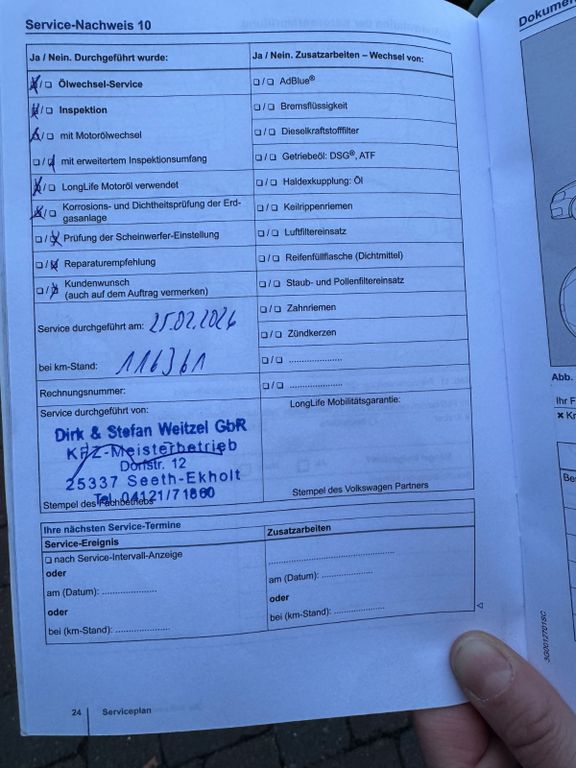 Service-Nachweis 10
Dokumen
Ja / Nein. Durchgeführt wurde:
☒/☐ Ölwechsel-Service
☒/☐ Inspektion
☒/☐ mit Motorölwechsel
☐/☒ mit erweitertem Inspektionsumfang
☒/☐ LongLife Motoröl verwendet
☒/☐ Korrosions- und Dichtheitsprüfung der Erd-
gasanlage
☐/☒ Prüfung der Scheinwerfer-Einstellung
☐/☒ Reparaturempfehlung
☐/☒ Kundenwunsch
(auch auf dem Auftrag vermerken)
Service durchgeführt am: 25.02.2026
bei km-Stand: 116361
Rechnungsnummer:
Service durchgeführt von:
Dirk & Stefan Weitzel GbR
KFZ-Meisterbetrieb
Dorfstr. 12
25337 Seeth-Ekholt
Tel. 04121/71860
Stempel des Fachbetriebs
Ja / Nein. Zusatzarbeiten – Wechsel von:
☐/☐ AdBlue®
☐/☐ Bremsflüssigkeit
☐/☐ Dieselkraftstofffilter
☐/☐ Getriebeöl: DSG®, ATF
☐/☐ Haldexkupplung: Öl
☐/☐ Keilrippenriemen
☐/☐ Luftfiltereinsatz
☐/☐ Reifenfüllflasche (Dichtmittel)
☐/☐ Staub- und Pollenfiltereinsatz
☐/☐ Zahnriemen
☐/☐ Zündkerzen
☐/☐ .....................
☐/☐ .....................
LongLife Mobilitätsgarantie:
Stempel des Volkswagen Partners
Ihre nächsten Service-Termine
Service-Ereignis
☐ nach Service-Intervall-Anzeige
oder
am (Datum): .....................
oder
bei (km-Stand): .....................
Zusatzarbeiten
..................................................
am (Datum): .....................
oder
bei (km-Stand): .....................
24 Serviceplan
Abb.
Ihr F
× Kr
Be
3G0012701SC